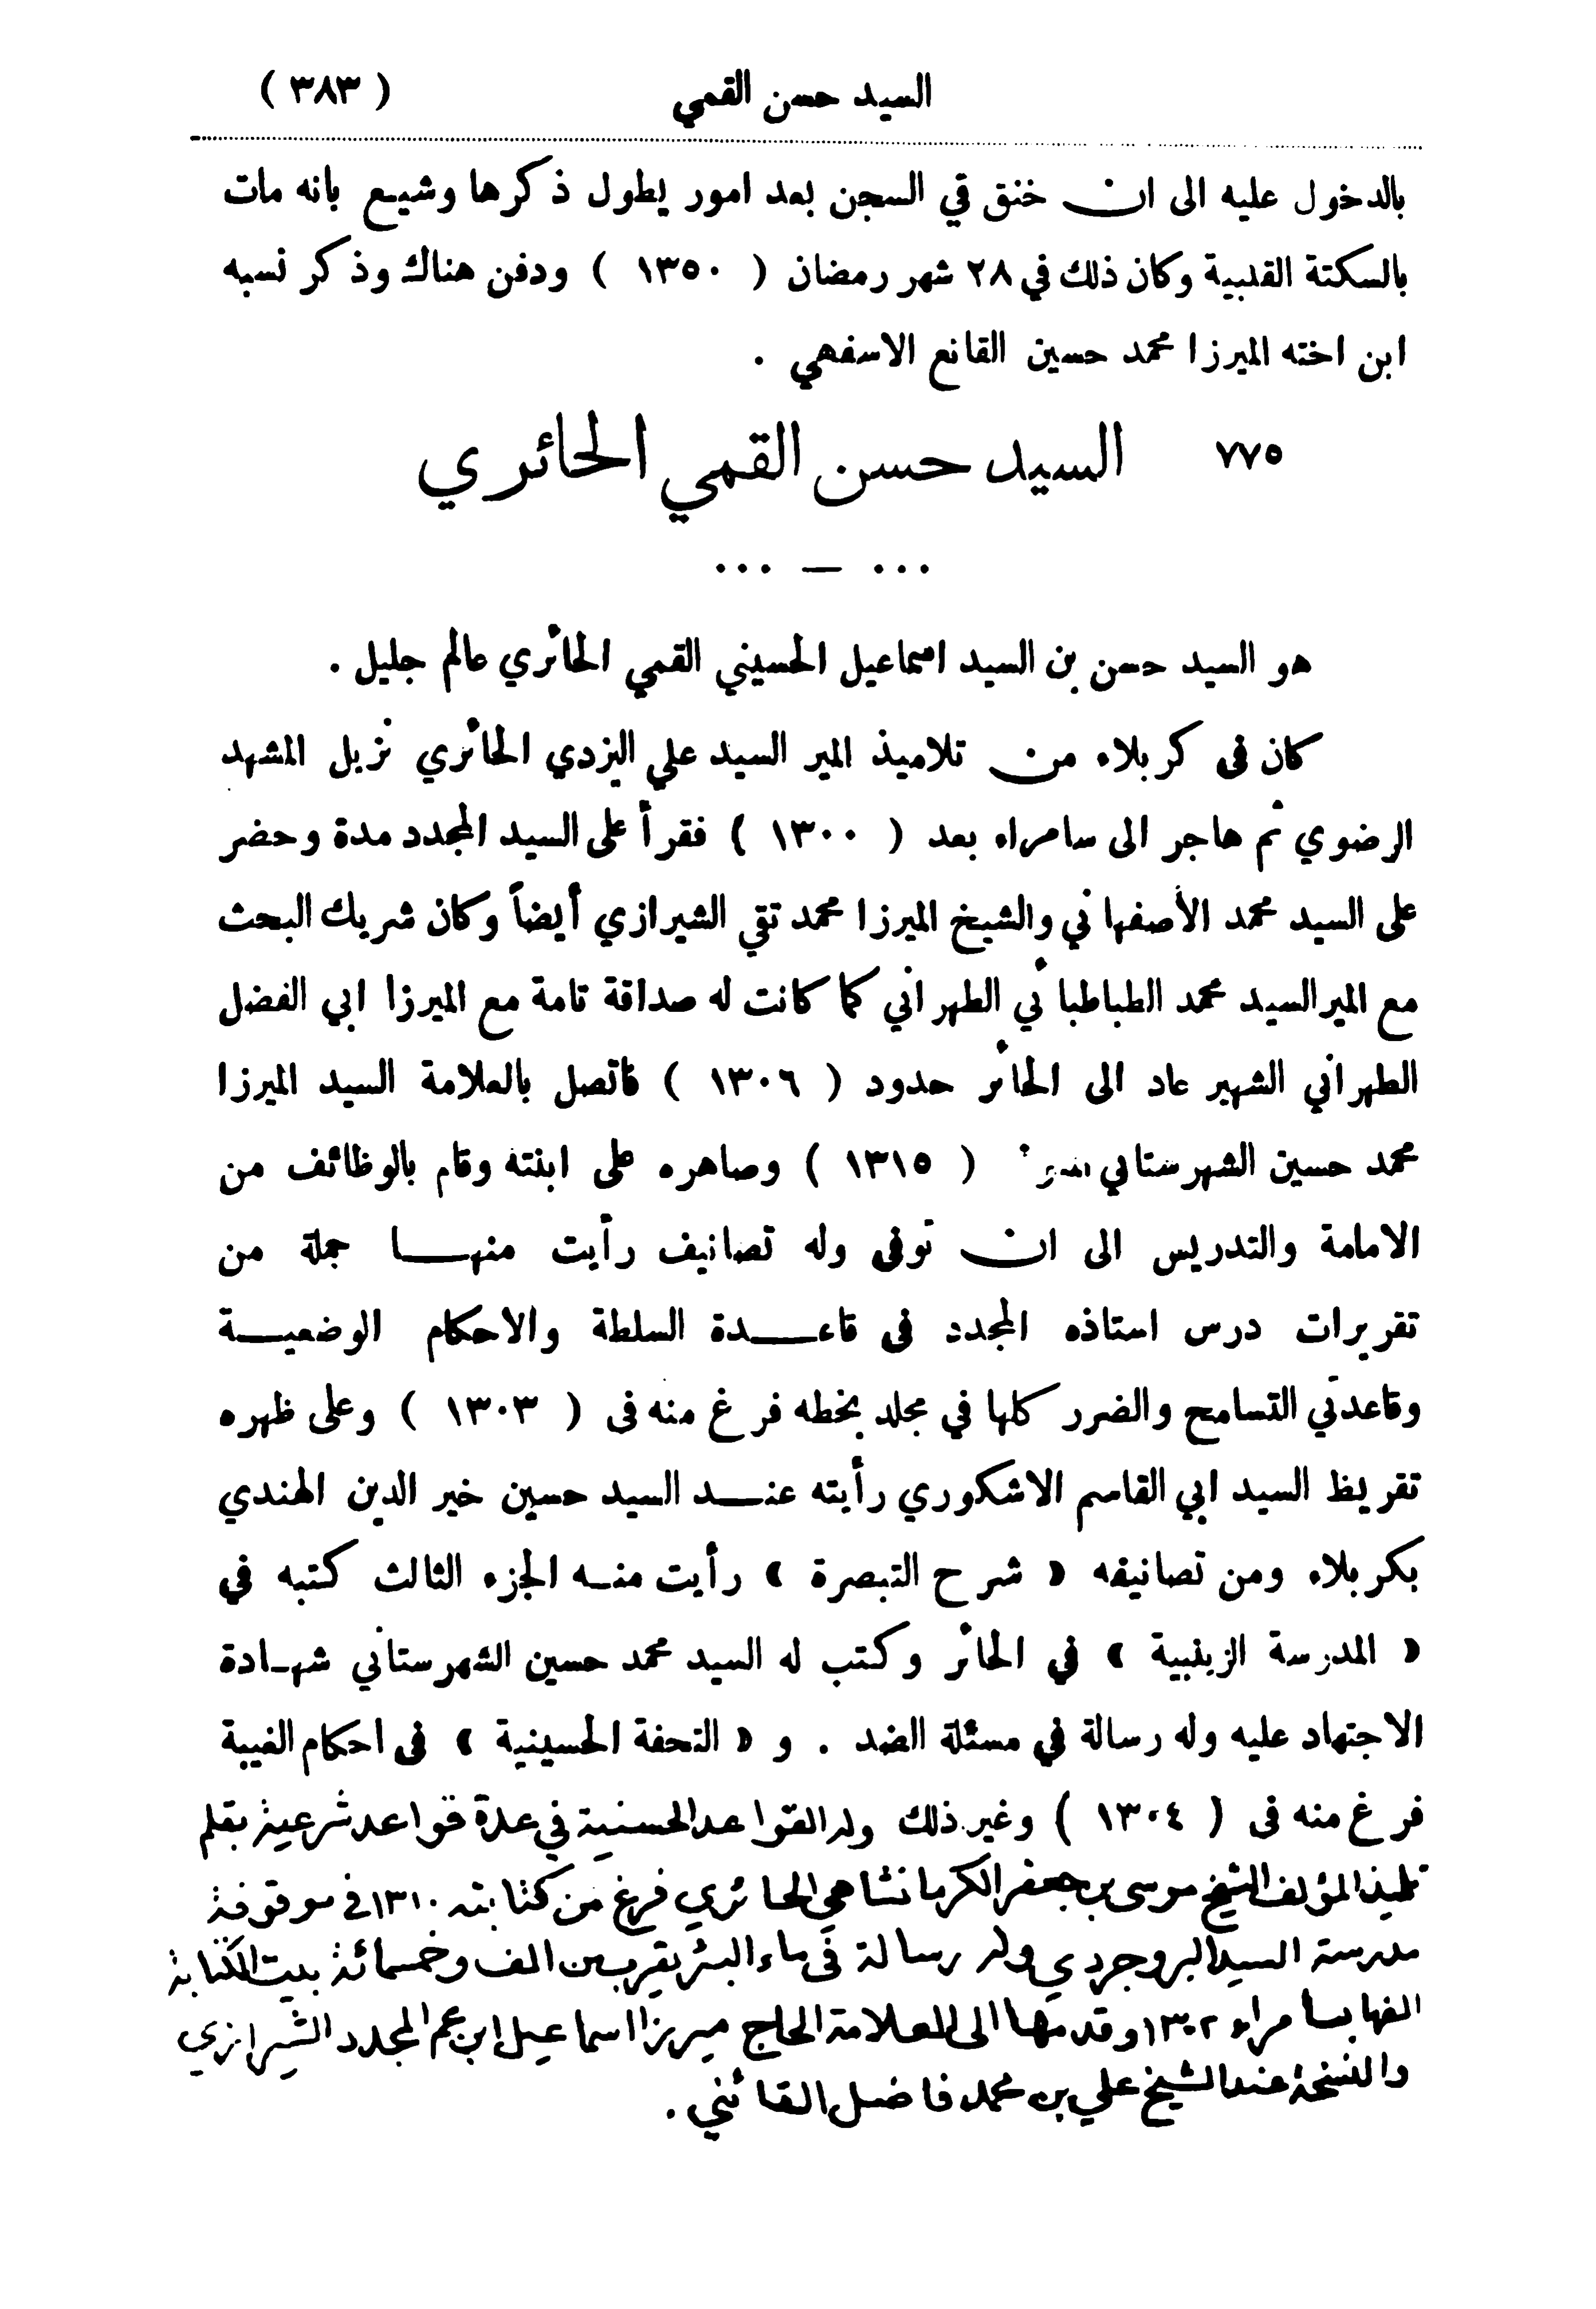 السيد حسن القمي ( ٣٨٣ )
بالدخول عليه الى ان خنق في السجن بعد امور يطول ذكرها وشيع بانه مات
بالسكتة القلبية وكان ذلك في ٢٨ شهر رمضان ( ١٣٥٠ ) ودفن هناك وذكر نسبه
ابن اخته الميرزا محمد حسين القانع الاسفهي .
٧٧٥ السيد حسن القمي الحائري
... — ...
هو السيد حسن بن السيد اسماعيل الحسيني القمي الحائري عالم جليل .
كان في كربلاء من تلاميذ المير السيد علي اليزدي الحائري نزيل المشهد
الرضوي ثم هاجر الى سامراء بعد ( ١٣٠٠ ) فقرأ على السيد المجدد مدة وحضر
على السيد محمد الأصفهاني والشيخ الميرزا محمد تقي الشيرازي أيضاً وكان شريك البحث
مع المير السيد محمد الطباطبائي الطهراني كما كانت له صداقة تامة مع الميرزا ابي الفضل
الطهراني الشهير عاد الى الحائر حدود ( ١٣٠٦ ) فاتصل بالعلامة السيد الميرزا
محمد حسين الشهرستاني ( ١٣١٥ ) وصاهره على ابنته وقام بالوظائف من
الامامة والتدريس الى ان توفى وله تصانيف رأيت منها جملة من
تقريرات درس استاذه المجدد في قاعدة السلطة والاحكام الوضعية
وقاعدتي التسامح والضرر كلها في مجلد بخطه فرغ منه في ( ١٣٠٣ ) وعلى ظهره
تقريظ السيد ابي القاسم الاشكوري رأيته عند السيد حسين خير الدين الهندي
بكربلاء ومن تصانيفه « شرح التبصرة » رأيت منه الجزء الثالث كتبه في
« المدرسة الزينبية » في الحائر وكتب له السيد محمد حسين الشهرستاني شهادة
الاجتهاد عليه وله رسالة في مسئلة الضد . و « التحفة الحسينية » في احكام الغيبة
فرغ منه في ( ١٣٠٤ ) وغير ذلك وله القواعد الحسنية في عدة قواعد شرعية بقلم
تلميذ المؤلف الشيخ موسى بن جعفر الكرمانشاهي الحائري فرغ من كتابته ١٣١٠ في موقوفة
مدرسة السيد البروجردي وله رسالة في ماء البئر يقرب من الف وخمسمائة بيت الكتابة
الفها بسامراء ١٣٠٢ وقدمها الى العلامة الحاج ميرزا اسماعيل ابن عم المجدد الشيرازي
والنسخة عند الشيخ علي بن محمد فاضل القائني .